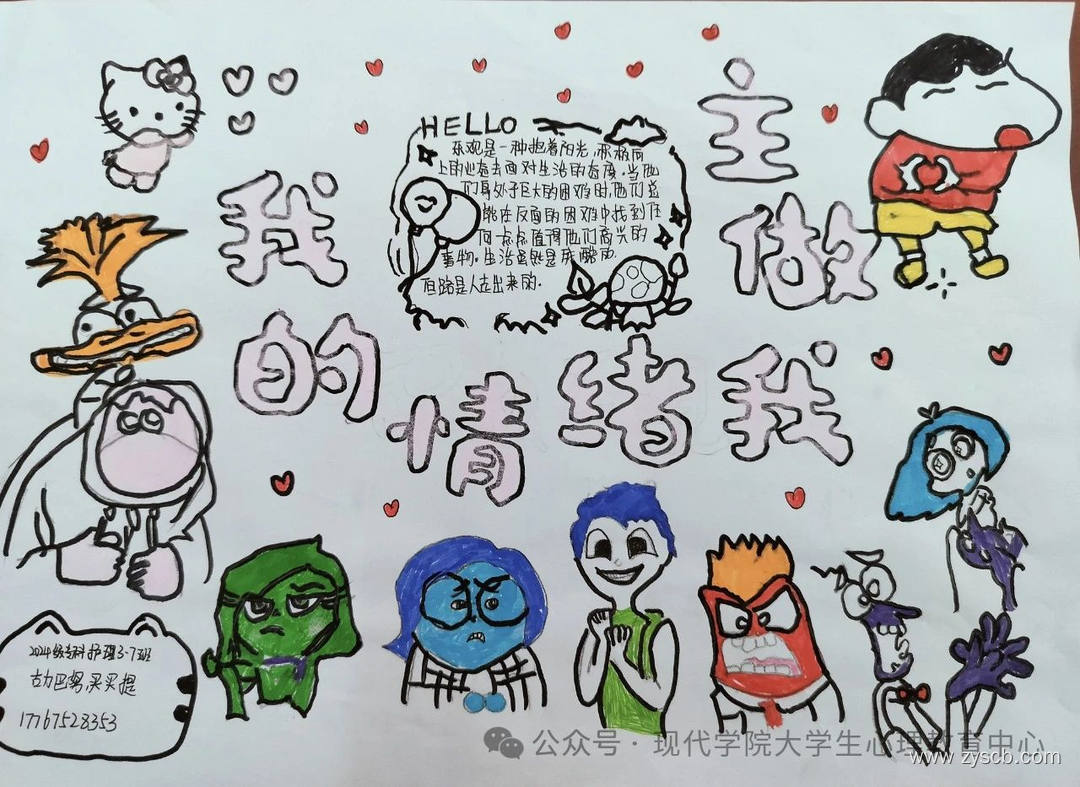 HELLO
乐观是一种抱着阳光,积极向
上的心态去面对生活的态度.当他
们身处于巨大的困难时,他们总
能在反面的困难中找到任
何一点点值得他们高兴的
事物.生活虽然是残酷的.
但路是人走出来的.
我的情绪我做主
2024级专科护理3-7班
古力巴努.买买提
17767528353
公众号·现代学院大学生心理教育中心
www.zyscb.com